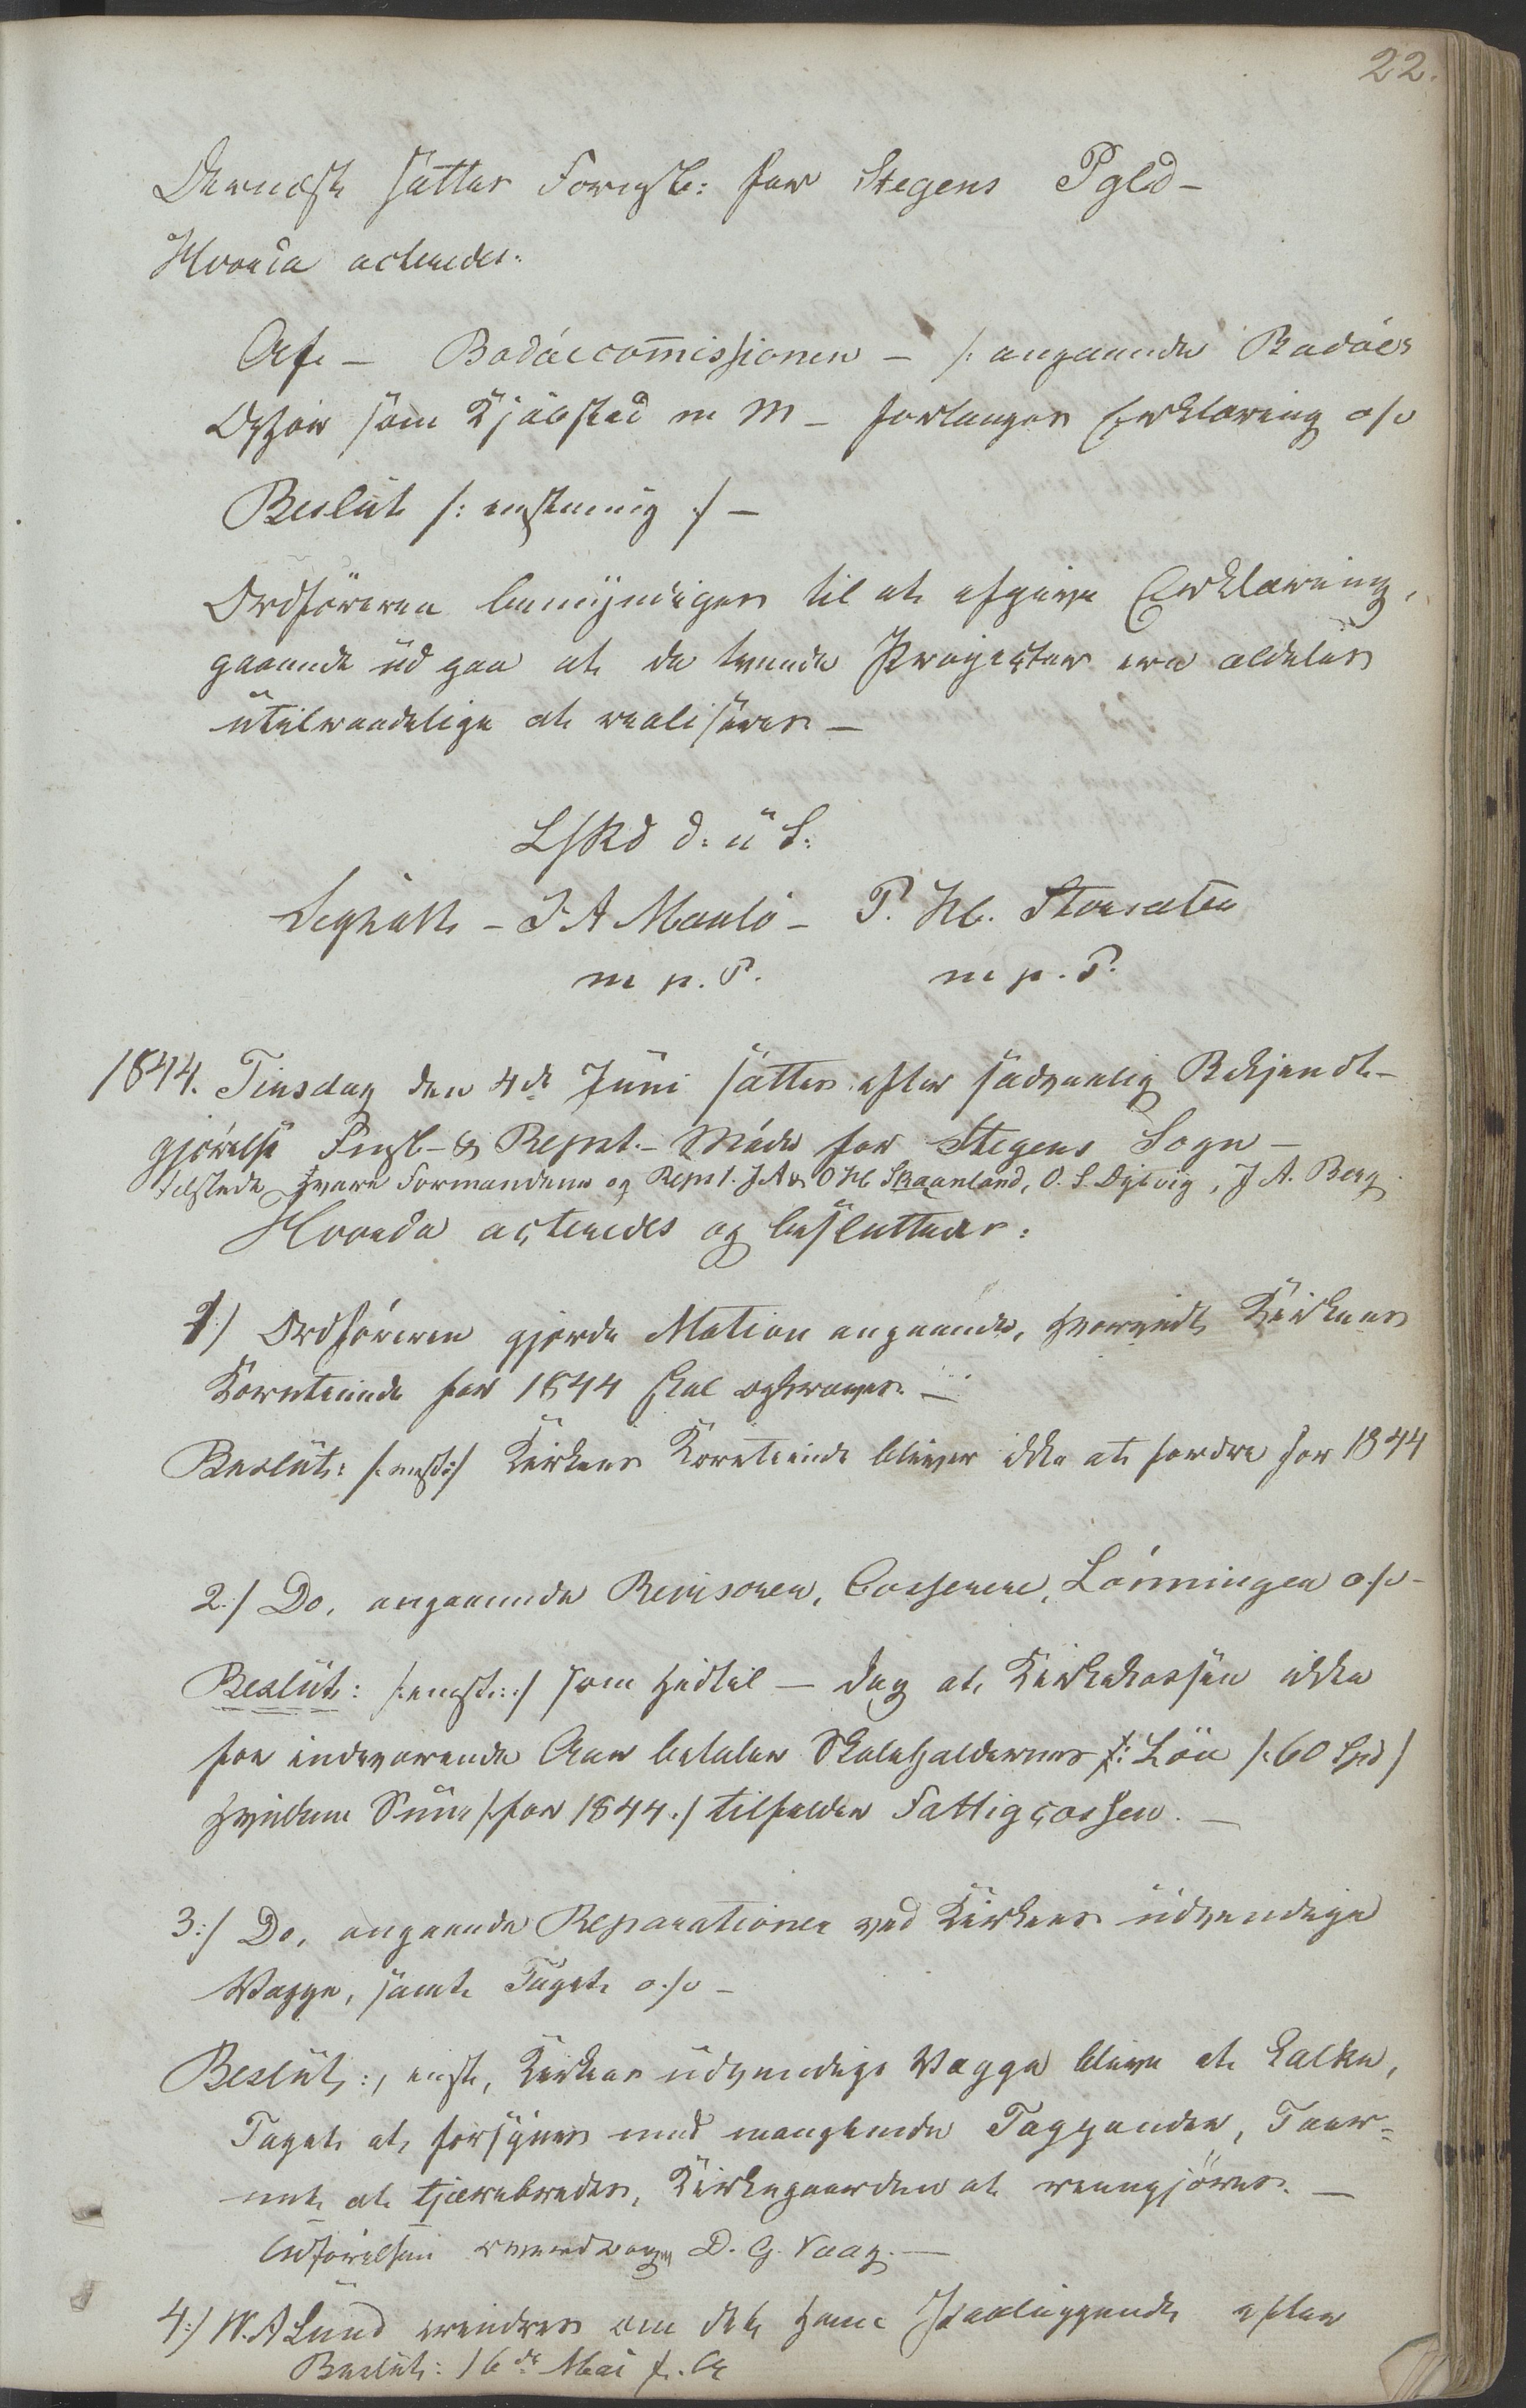 22.
Dernæst sattes Formsk: for Stegens Pgld-
Hvorda acteredes.
Af - Bodöecommissionen - /: angaaende Bodöes
Ophör som Kjöbsted m M - forlanges Erklæring o/s
Beslut /: enstemig :/ -
Ordföreren bemyndiges til at afgive Erklæring,
gaaende ud paa at de tvende Projecter ere aldeles
utilraadelige at realiseres -
LSRd d: u S:
Sigholt - J A Maalö - P. Hl. Storsæten
m p. P. m p. P.
1844. Tiisdag den 4de Juni sattes efter sædvanlig Bekjendt-
gjörelse Fmsk- & Repnt.- Möde for Stegens Sogn -
tilstede vare Formændene og Repnt. J A & O Hl Skaanland, O. S. Dybvig, J A. Berg.
Hvorda acteredes og besluttedes:
1/ Ordföreren gjorde Motion angaaende, hvorvidt Kirkens
Korntiende for 1844 skal opkræves. -
Beslut: /: enst:/ Kirkens Korntiende bliver ikke at fordre for 1844
2:/ Do. angaaende Revisoren, Casserere, Lönningen o/s -
Beslut: /: enst:/ som hidtil - dog at Kirkekassen ikke
for indeværende Aar betaler Skoleholdernes Lön /: 60 Spd /
hvilken Sum /: for 1844 :/ tilfalder Fattigcassen. -
3:/ Do. angaaende Reparationer ved Kirkens udvendige
Vægge, samt Taget o/s -
Beslut:, enst, Kirkens udvendige Vægge blive at kalke,
Taget at forsynes med manglende Tagpander, Taar-
net at tjærebredes, Kirkegaarden at reengjöres. -
Udförelsen D. G. Vaag. -
4:/ W. A Lund erindres om det ham Paaliggende efter
Beslut: 16de Mai f. A